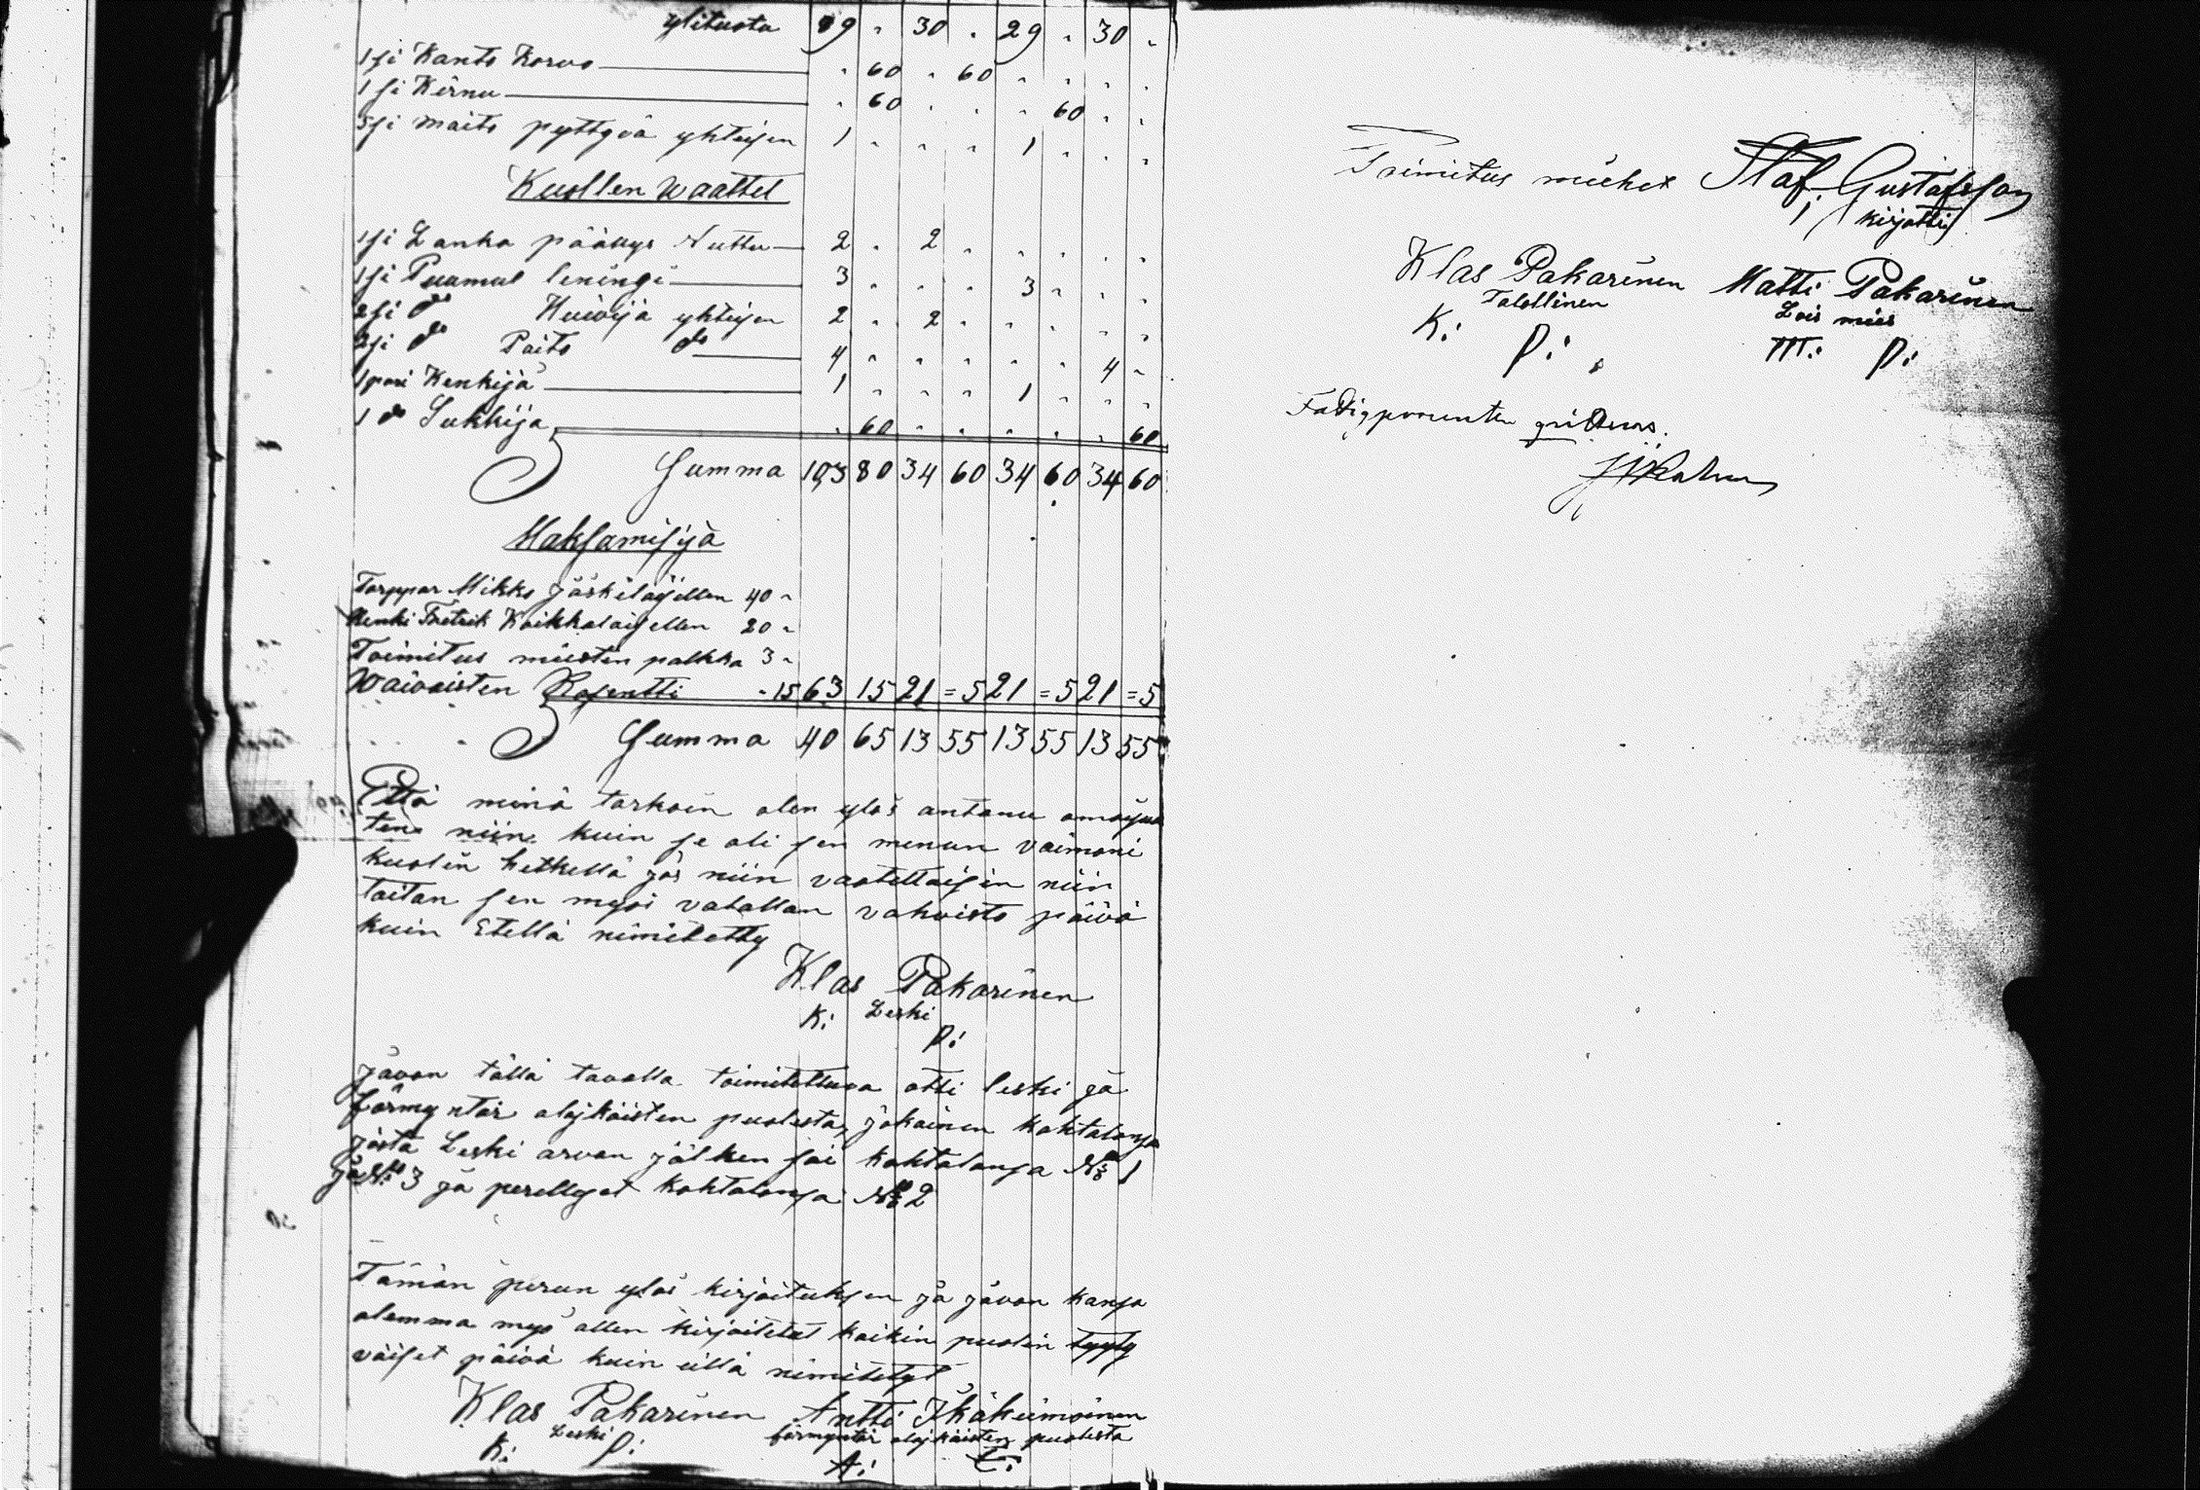 ylituota 89 " 30 " 29 " 30 "
1 si Kanto Korvo " 60 " 60 " " " "
1 si Kirnu " 60 " " " 60 " "
5 si maito pyttyvä yhteisen 1 " " " 1 " " "
Kuollen waattet
1 si Lanka päällys Nuttu 2 " 2 " " " " "
1 si Puumul leningi 3 " " " 3 " " "
2 si do Huivija yhteisen 2 " 2 " " " " "
2 si do Paito do 4 " " " " " 4 "
1 pari Kenkijä 1 " " " 1 " " "
1 do Sukkija " 60 " " " " " 60
Summa 103 80 34 60 34 60 34 60
Maksamisija
Torppar Mikko Jääskeläisellen 40 "
Renki Fretrik Koikkalaisellen 20 "
Toimitus miesten palkka 3 "
Waivaisten Rosentti " 15 63 15 21 = 5 21 = 5 21 = 5
Summa 40 65 13 55 13 55 13 55
Että minä tarkoin olen ylös antanu omaisuu
ten niin kuin se oli sen minun vaimoni
kuolin hetkellä jos niin vaatettaisin niin
taitan sen myös valallan vahvista päivä
kuin Etellä nimitetty
Klas Pakarinen
Leski
K: P:
Javon tällä tavalla toimitettuva otti leski ja
förmyntär alaikäisten puolesta, jokainen kohtalonsa
josta Leski arvan jälken sai kohtalonsa No 1
ja No 3 ja perelliset kohtalonsa No 2
Tämän perun ylös kirjoituksen ja javon kansa
olemma myö allen kirjoitetut kaikin puolin tyyty
väiset päivä kuin eillä nimitetyt
Klas Pakarinen Antti Ikäheimoinen
Leski förmyntär alaikäisten puolesta
K: P: A: I:
Toimitus miehet Staf. Gustafsson
kirjotti
Klas Pakarinen Matti Pakarinen
Talollinen Lois mies
K: P: M: P: